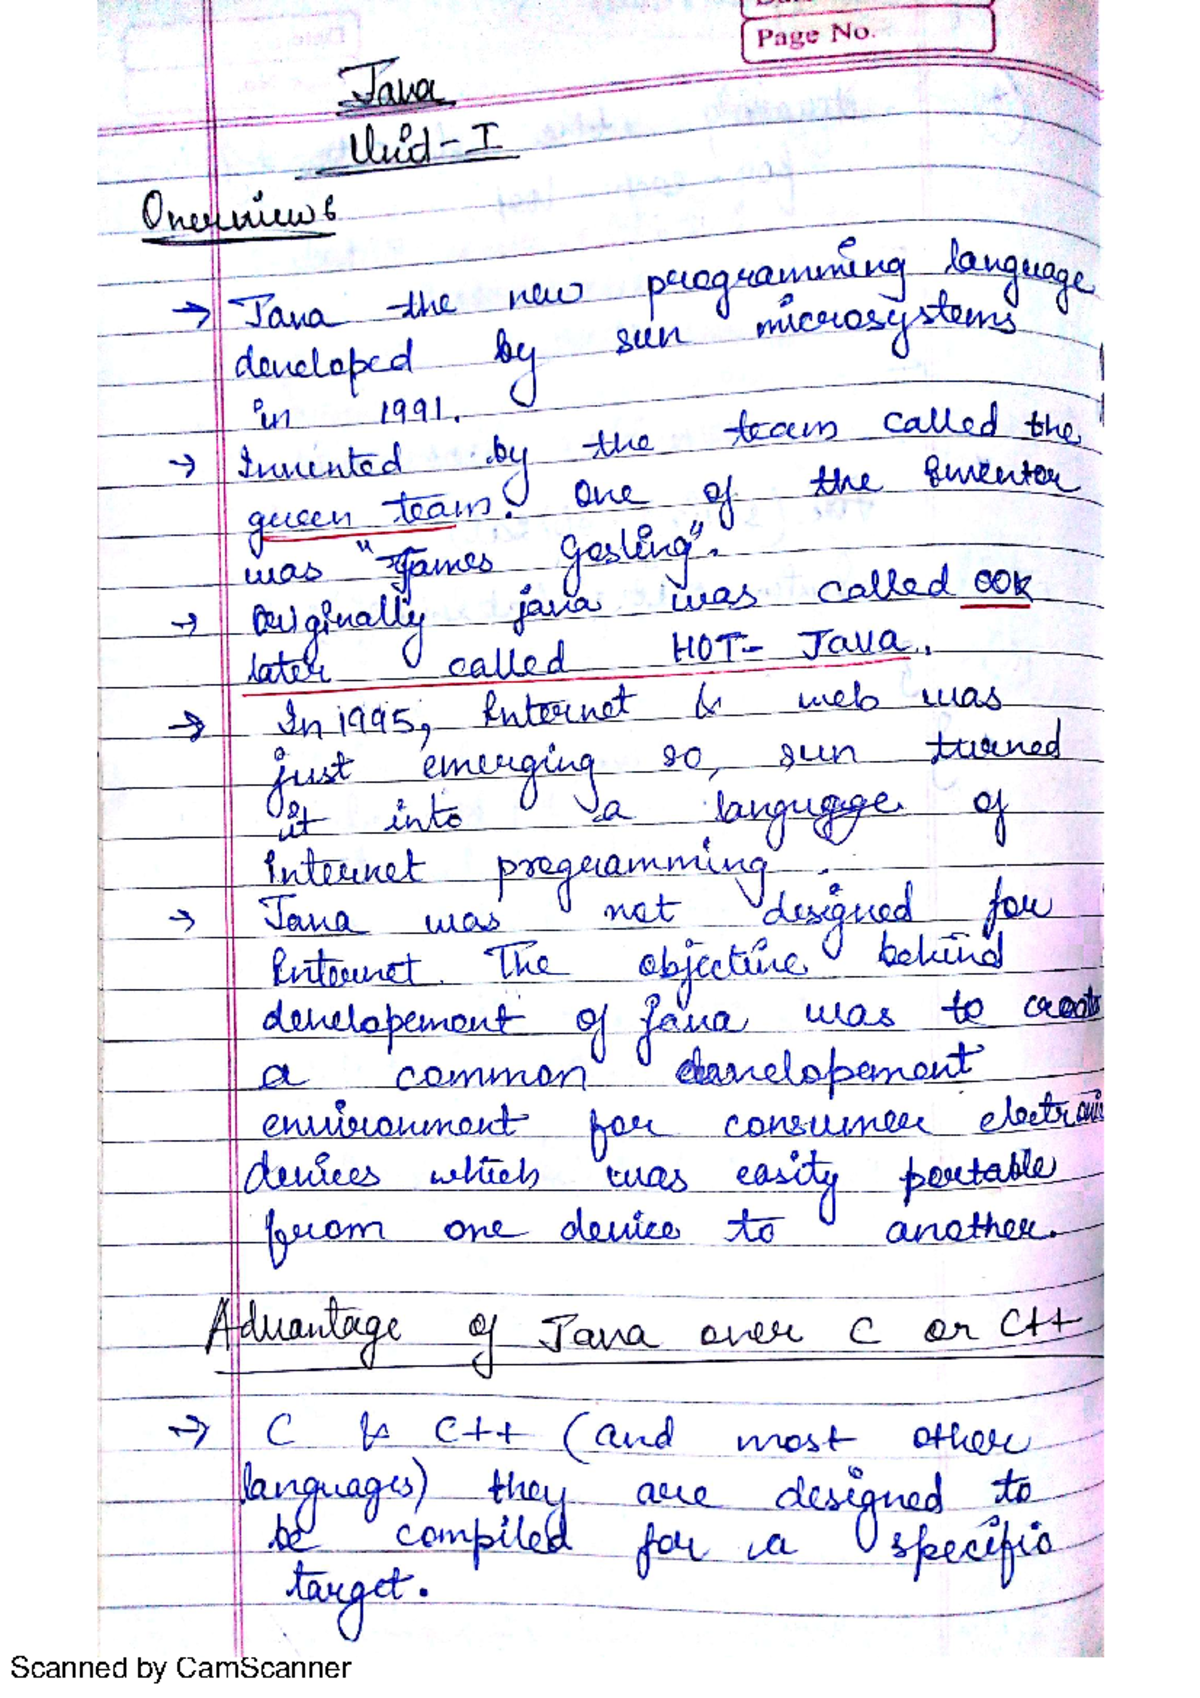 Page No.
Java
Unid-I
Overview :
→ Java the new programming language
developed by sun microsystems
in 1991.
→ Invented by the team called the
gueen team. One of the Inventor
was "James Gosling".
→ Originally java was called OOK
later called HOT- JAVA.
→ In 1995, Internet & web was
just emerging so, sun turned
it into a language of
Internet programming.
→ Java was not designed for
Internet. The objective behind
developement of Java was to create
a common developement
environment for consumer electronic
devices which was easity portable
from one device to another.
Advantage of Java over C or C++
→ C & C++ (and most other
languages) they are designed to
be compiled for a specific
target.
Scanned by CamScanner